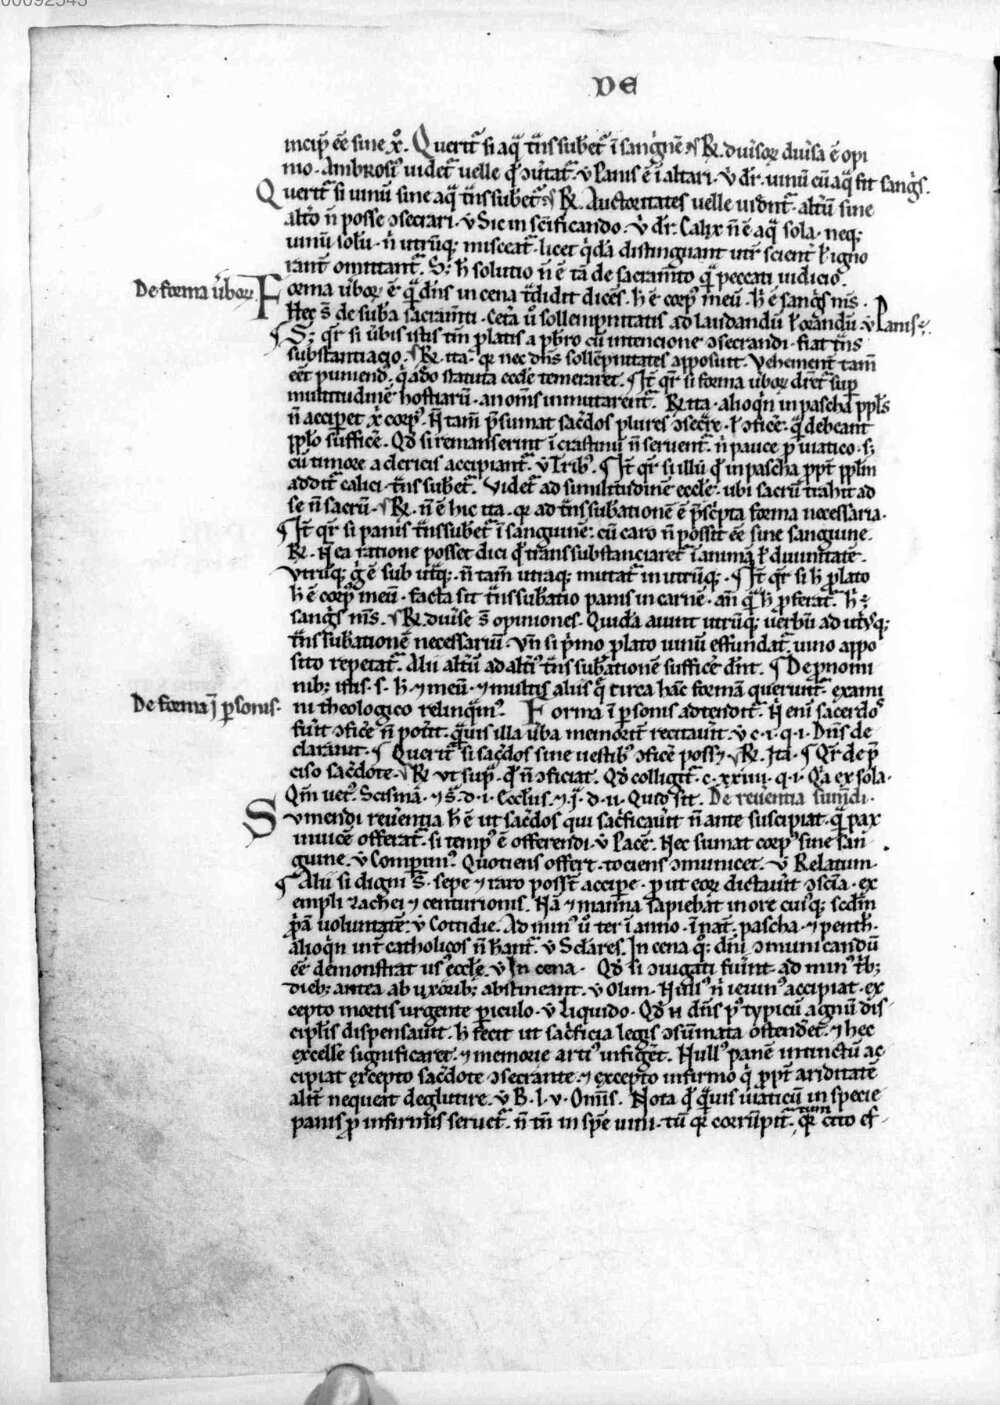 00092545
DE
incip̄ ēe sine x̊. Querit᷑ si aq̄ t̄ns sub̄et᷑ ī sangͥnē ⁊ R̄. diuisoꝝ diuisa ē opi
nio. Ambrosiꝰ uidet᷑ uelle qd̓ ɔu̓tat᷑. v̓ Panis ē ī altari. v̓ dr̄. uinū cū aq̄ fit sangͥs.
Querit᷑ si uinū sine aq̄ t̄ns sub̄et᷑. R̄. Auctoritates uelle uidēt᷑. alt̓ū sine
alt̓o n̄ posse ɔsecrari. v̓ Sic in sc̄ificando. v̓ dr̄. Calix n̄ ē aq̄ sola. neq;
uinū solū. n̓ utrūq; misceat᷑. licet qͥdā distinguant utr̄ scient̓ ł igno
rant̓ omittant᷑. S; h̄ solutio n̄ ē tā de sacram̄to qͣ peccati iudicio.
De forma ub̓oꝝ.
Forma ub̓oꝝ ē q̄ dn̄s in cena t̓didit dicēs. h̄ ē corpꝰ meū. h̄ ē sangͥs mͥs.
Hec s̄ de sub̄a sacram̄ti. Cet̓a u̓o sollempnitatis ad laudandū ł orandū. v̓ Panis ē.
¶ S; qr̄ si ub̓is istis tm̄ p̄latis a p̄b̓ro cū intencione ɔsecrandi. fiat t̄ns
substantiacio. R̄. ita. qꝛ nec dn̄s sollēpnitates apposuit. Vehement̓ tam̄
eēt puniend̓. qͥ ad̓o statuta eccl̓e temeraret. ¶ It̄ qr̄ si forma ub̓oꝝ dr̄et᷑ sup̄
multitudinē hostiarū. an om̄s inmutarent᷑. R̄ ita. alioqͥn in pascha ppl̓s
n̄ accip̓et x̄ corpꝰ. N̄ tam̄ p̄sumat sac̓dos plures ɔsec̓re. ł ɔfice̓. qͣ debeant
pplo suffice̓. Qd̓ si remanserint ī crastinū n̄ seruent᷑. n̓ pauce p̄ uiatico. s;
cū timore a clericis accipiant᷑. v̓ Tribꝰ. ¶ It̄ qr̄ si illū qd̓ in pascha ppt̓ pplm
addit᷑ calici. t̄ns sub̄et᷑. Videt᷑ ad similitudinē eccl̓e. ubi sacrū trahit ad
se n̄ sacrū. R̄. n̄ ē hic ita. qꝛ ad t̄ns sub̄ationē ē p̄sc̓pta forma necessaria.
¶ It̄ qr̄ si panis t̄ns sub̄et᷑ ī sanguinē. cū caro n̄ possit ēe sine sanguine.
R̄. N̄ ea ratione posset dici qd̓ transsubstanciaret᷑ ī animā ł diuinitatē.
Vtrūq; g̓ ē sub utͣq;. n̄ tam̄ utraq; mutat᷑ in utrūq;. ¶ It̄ qr̄ si h̄ p̄lato
h̄ ē corpꝰ meū. facta sit t̄ns sub̄atio panis in carnē. an̄ qͣ h̄ p̄ferat᷑. h̄ ē
sangͥs mͥs. R̄. diu̓se s̄ opiniones. Quidā aiunt utrūq; uerbū ad utr̄q;
t̄ns sub̄ationē necessariū. Vn̄ si pͥmo p̄lato uinū effundat᷑. uino appo
sito repetat᷑. Alii alt̓ū ad alt̓iꝰ t̄ns sub̄ationē suffice̓ dn̄t. ¶ De p̄nomi
nib; istis. s. h̄. ⁊ meū. ⁊ multis aliis qͥ circa hāc formā querunt᷑. exami
De forma ī psonis.
ni theologico relinqͥmꝰ. Forma ī p̄sonis adtendit᷑. N̄ enī sacerdoˢ
fuit ɔfice̓ n̄ pot̓it. qͣuis illa ub̓a memorit̓ recitauit. v̓ c. i. q. i. Dn̄s de
clarauit. ¶ Querit᷑ si sac̓dos sine uestibꝰ ɔfice̓ possit. R̄. Ita. ¶ Qr̄ de p̄
ciso sac̓dote. R̄ ut sup̄. qd̓ n̄ ɔficiat. Qd̓ colligit᷑. c. xxiiii. q. i. Qͣ ex sola.
Qm̄ uetꝰ. Scismā. ⁊ s̄. d. i. Eccl̓iis. ⁊ j̄. d. ii. Quid sit. De reuerentia sumēdi.
Sumendi reu̓entia h̄ ē ut sac̓dos qui sac̓ficauit n̄ ante suscipiat. qͣ pax
inuicē offerat᷑. si tempꝰ ē offerendi. v̓ Pacē. Nec sumat corpꝰ sine san
guine. v̓ Comperimꝰ. Quotiens offert. tociens ɔmunicet. v̓ Relatum.
¶ Alii si digni s̄. sepe ⁊ raro poss̄t accipe̓. ꝓut eoꝝ dictau̓it ɔscīa. ex
empli zachei ⁊ centurionis. Nā ⁊ manna sapiebat in ore cuiꝰq; scd̄m
pͥā uoluntatē. v̓ Cottidie. Ad minꝰ u̓ ter ī anno. ī nat̓. pascha. ⁊ penth̓.
alioqͥn int̓ catholicos n̄ h̄ant᷑. v̓ Sc̓lares. In cena qͦ; dn̄i ɔmunicandū
ēe demonstrat usꝰ eccl̓e. v̓ In cena. Qd̓ si ɔiugati fu̓int ad minꝰ t̓b;
dieb; antea ab uxorib; abstineant. v̓ Olim. Nullꝰ n̓ ieiunꝰ accipiat. ex
cepto mortis urgente p̄iculo. v̓ Liquido. Qd̓ ū dn̄s pꝰ typicū agnū dis
cipl̓is dispensauit. h̄ fecit ut sac̓ficia legis ɔsūmata ostende̓t. ⁊ hec
excelle significaret᷑. ⁊ memorie artiꝰ infiget᷑. Nullꝰ panē intinctū ac
cipiat excepto sac̓dote ɔsecrante. ⁊ excepto infirmo qͥ ppt̓ ariditatē
alit̓ nequeit deglutire. v̓ B. l. v. Omīs. Nota qd̓ qͣuis uiaticū in specie
panis p̄ infirmis seruet᷑. n̄ tn̄ in sp̄e uini. tū qꝛ corrūpit᷑. tum qꝛ cito ef